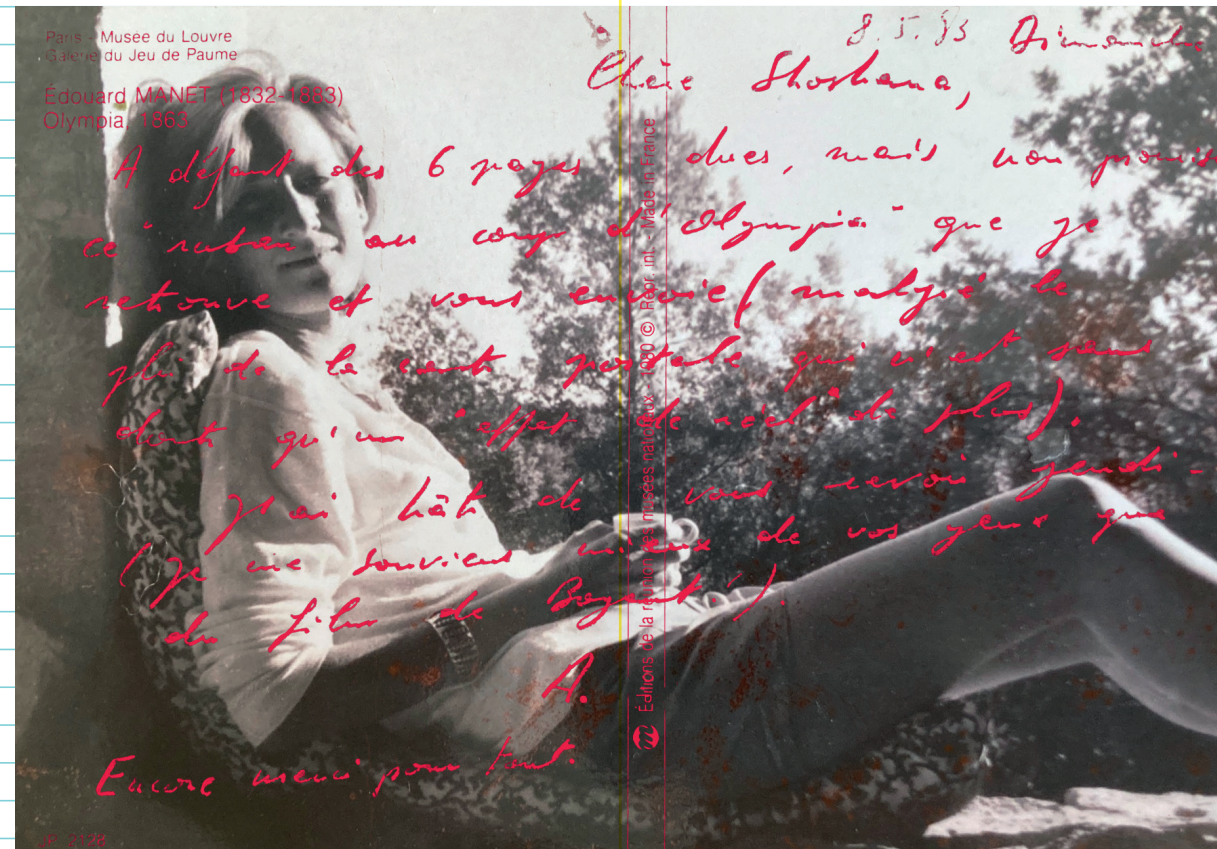 Paris - Musée du Louvre
Galerie du Jeu de Paume
Édouard MANET (1832-1883)
Olympia, 1863
8.5.83 Dimanche
Chère Shoshana,
A défaut des 6 pages dues, mais non promises
ce "ruban au cou d'Olympia" que je
retrouve et vous envoie (malgré le
pli de la carte postale qui n'est sans
doute qu'un "effet de réel" de plus).
J'ai hâte de vous revoir jeudi -
(je me souviens mieux de vos yeux que
du film de Bogart!).
A.
Encore merci pour tout.
Éditions de la réunion des musées nationaux - 1980 © Repr. int. - Made in France